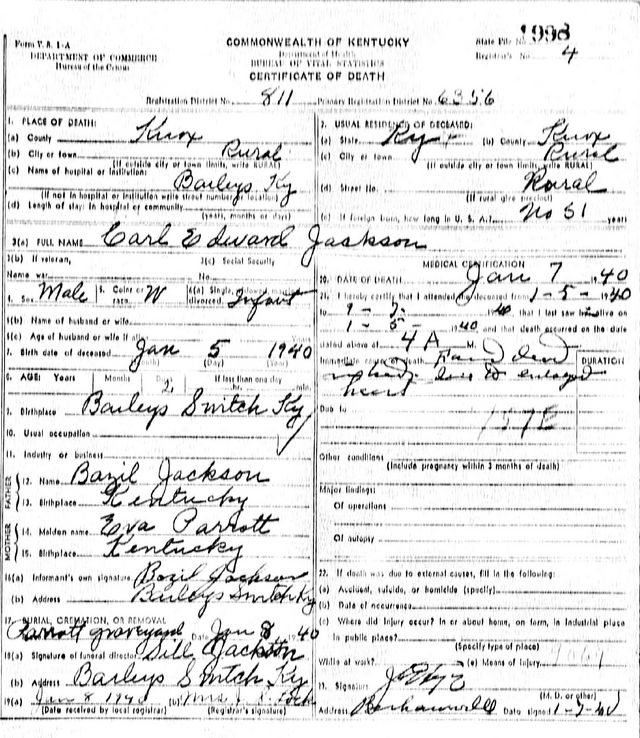 Form V. S. 1-A
DEPARTMENT OF COMMERCE
Bureau of the Census
COMMONWEALTH OF KENTUCKY
Department of Health
BUREAU OF VITAL STATISTICS
CERTIFICATE OF DEATH
State File No.
Registrar's No. 4
Registration District No. 811 Primary Registration District No. 6356
1. PLACE OF DEATH:
(a) County Knox
(b) City or town Rural
(If outside city or town limits, write RURAL)
(c) Name of hospital or institution:
Baileys Ky
(If not in hospital or institution write street number or location)
(d) Length of stay: In hospital or community
(years, months or days)
2. USUAL RESIDENCE OF DECEASED:
(a) State Ky (b) County Knox
(c) City or town Rural
(If outside city or town limits, write RURAL)
(d) Street No. Rural
(If rural give precinct)
(e) If foreign born, how long in U. S. A.? No 51 years
3(a) FULL NAME Carl Edward Jackson
3(b) If veteran, 3(c) Social Security
Name war No.
4. Sex Male 5. Color or race W 6(a) Single, widowed, married, divorced Infant
6(b) Name of husband or wife
6(c) Age of husband or wife if alive
7. Birth date of deceased Jan 5 1940
(Month) (Day) (Year)
8. AGE: Years Months Days If less than one day
2 hr. min.
9. Birthplace Baileys Switch Ky
10. Usual occupation
11. Industry or business
FATHER
12. Name Bazil Jackson
13. Birthplace Kentucky
MOTHER
14. Maiden name Eva Parrott
15. Birthplace Kentucky
16(a) Informant's own signature Bozil Jackson
(b) Address Baileys Switch Ky
17. BURIAL, CREMATION, OR REMOVAL
Parrott graveyard Date Jan 8 1940
18(a) Signature of funeral director Dill Jackson
(b) Address Baileys Switch Ky
19(a) Jan 8 1940 (b) Mrs.
(Date received by local registrar) (Registrar's signature)
MEDICAL CERTIFICATION
20. DATE OF DEATH Jan 7 1940
21. I hereby certify that I attended the deceased from 1-5-1940
to 1940 that I last saw him alive on
1-5-1940 and that death occurred on the date
stated above at 4 A M.
Immediate cause of death Found dead
in bed. due to enlarged
heart
DURATION
Due to 157E
Other conditions
(Include pregnancy within 3 months of death)
Major findings:
Of operations
Of autopsy
22. If death was due to external causes, fill in the following:
(a) Accident, suicide, or homicide (specify)
(b) Date of occurrence
(c) Where did injury occur? In or about home, on farm, in industrial place
in public place?
(Specify type of place)
While at work? (e) Means of injury
23. Signature
(M. D. or other)
Address Barbourville Date signed 1-7-40